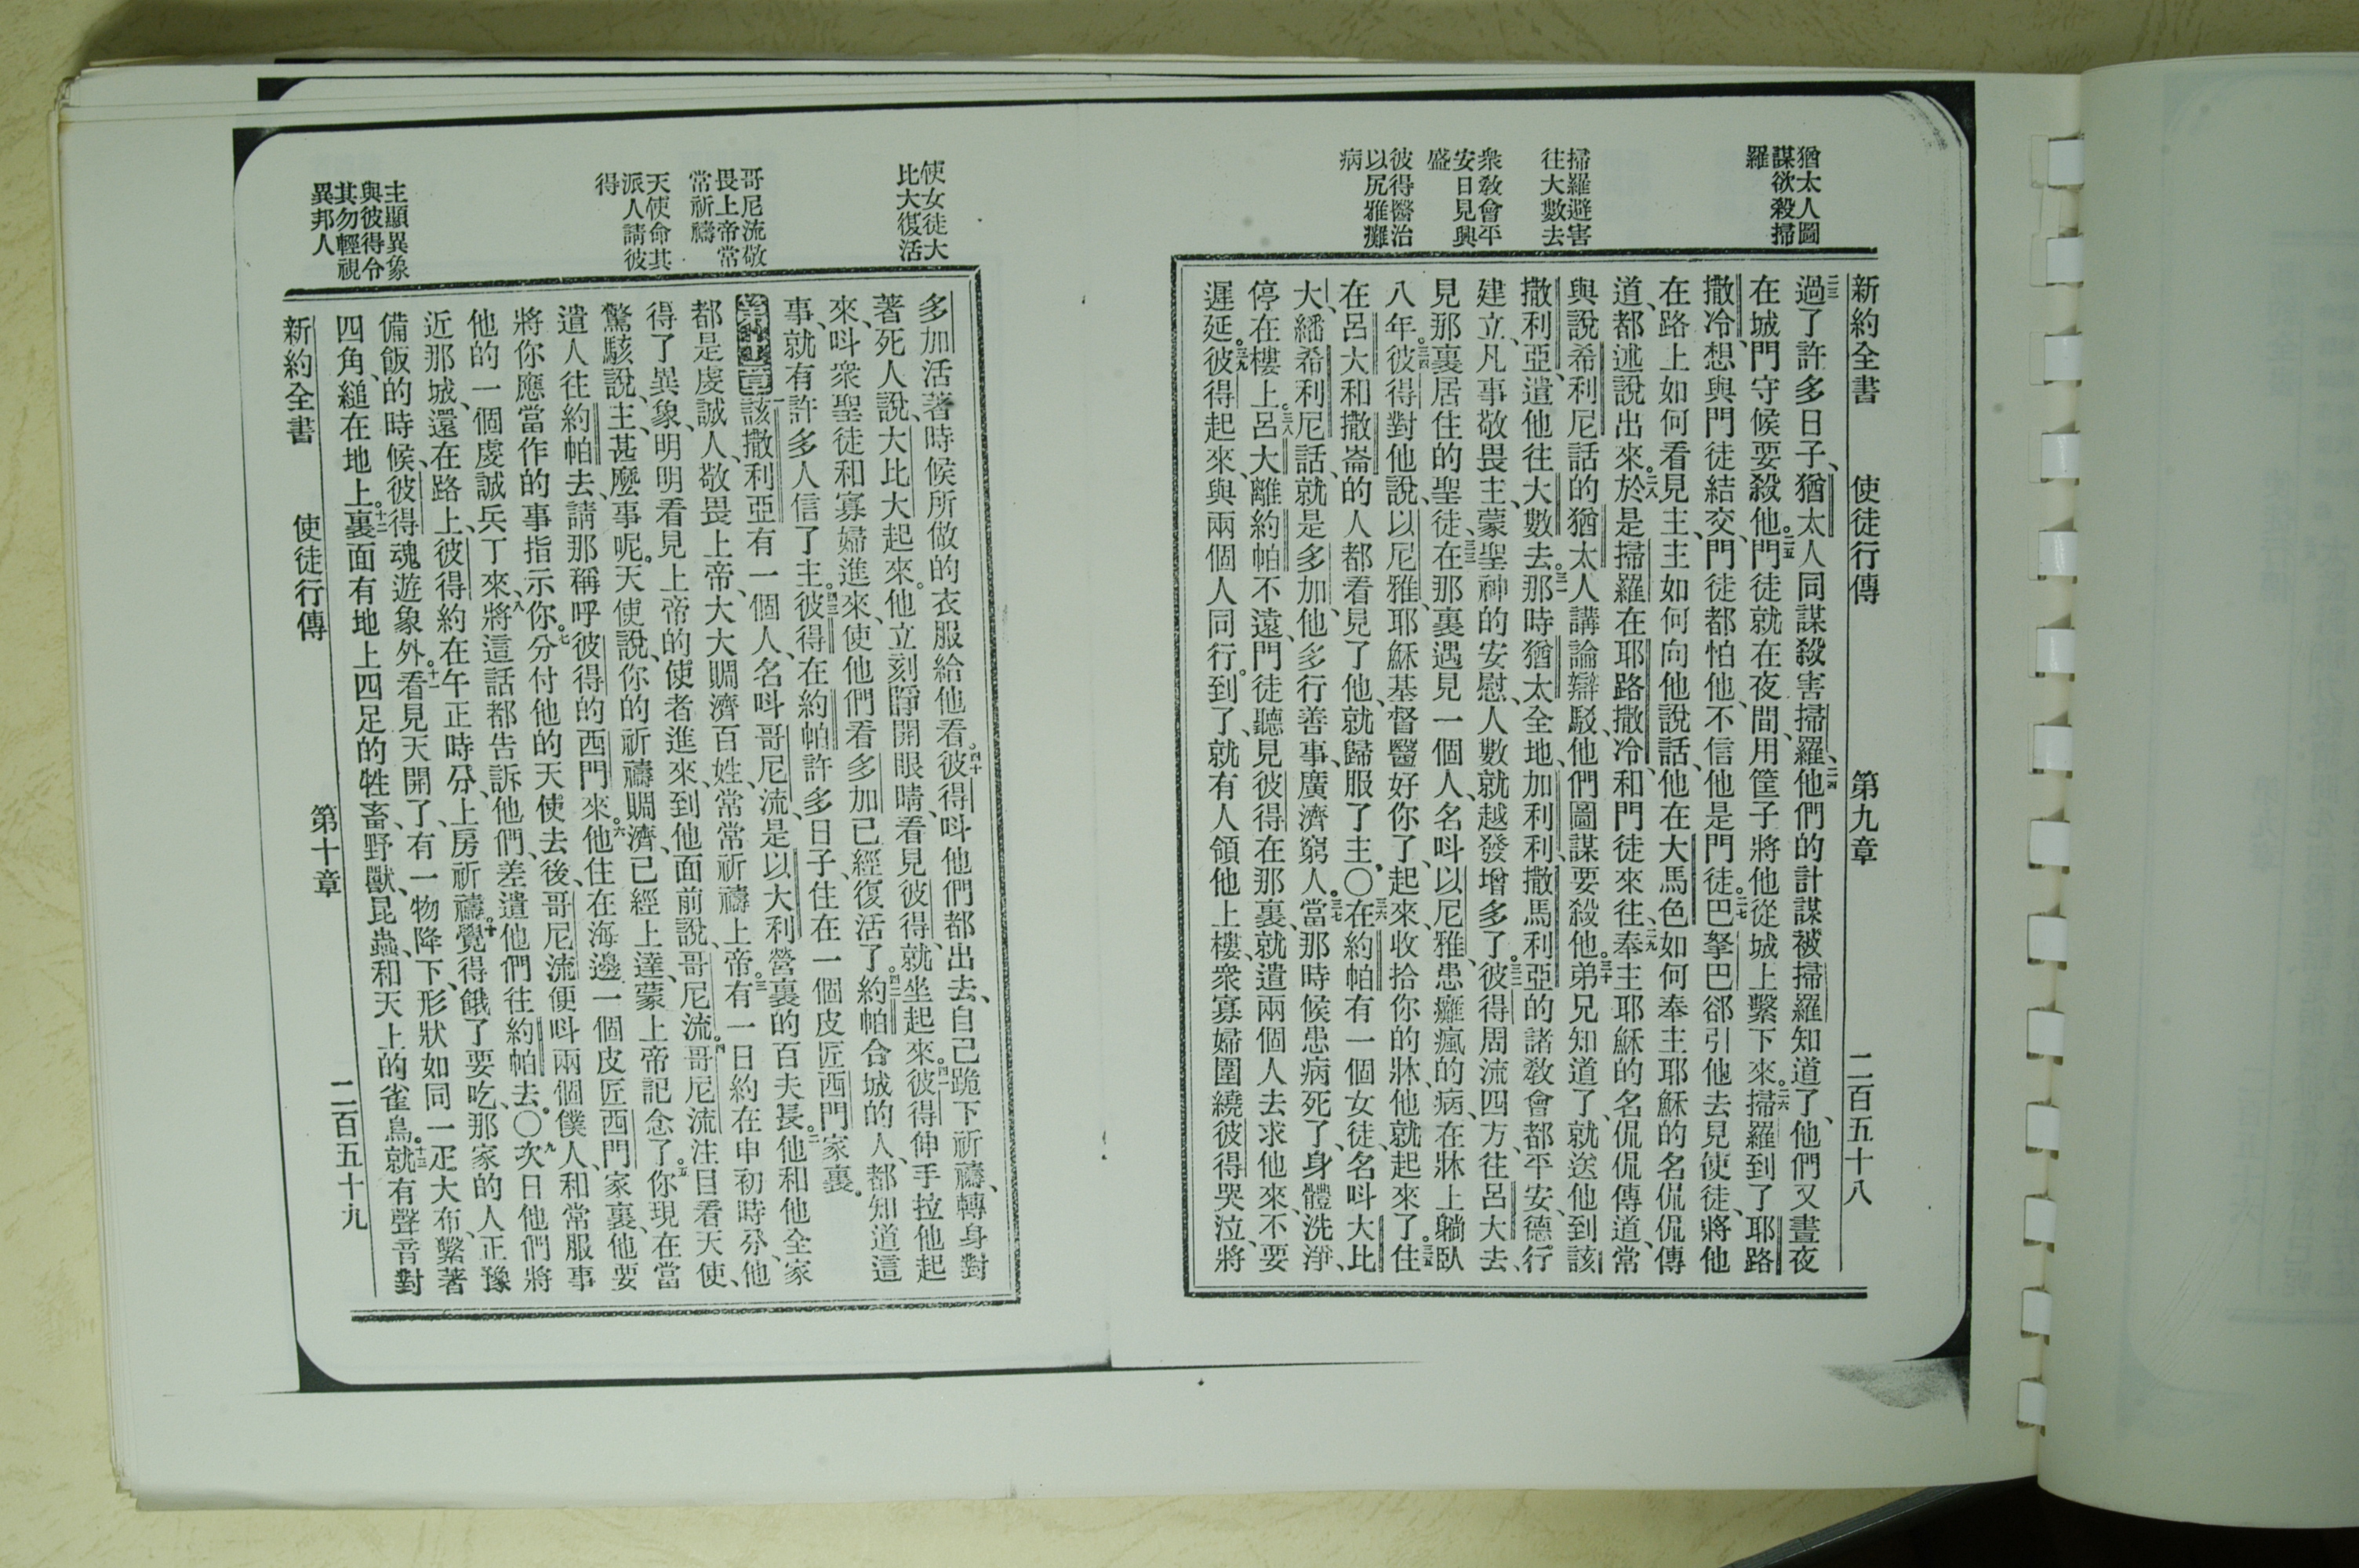 新約全書 使徒行傳 第九章 二百五十八
猶太人圖
謀欲殺掃
羅
掃羅避害
往大數去
衆敎會平
安日見興
盛
彼得醫治
以尼雅癱
病
二三過了許多日子、猶太人同謀殺害掃羅、二四他們的計謀被掃羅知道了、他們又晝夜
在城門守候要殺他。二五門徒就在夜間、用筐子將他從城上繫下來。二六掃羅到了耶路
撒冷、想與門徒結交、門徒都怕他、不信他是門徒。二七巴拏巴郤引他去見使徒、將他
在路上如何看見主、主如何向他說話、他在大馬色如何奉主耶穌的名侃侃傳
道、都述說出來。二八於是掃羅在耶路撒冷、和門徒來往、二九奉主耶穌的名侃侃傳道、常
與說希利尼話的猶太人講論辯駁、他們圖謀要殺他。三十弟兄知道了、就送他到該
撒利亞、遣他往大數去。三一那時猶太全地、加利利、撒馬利亞的諸敎會都平安、德行
建立、凡事敬畏主、蒙聖神的安慰、人數就越發增多了。三二彼得周流四方、往呂大去、
見那裏居住的聖徒、三三在那裏遇見一個人、名呌以尼雅、患癱瘋的病、在牀上躺臥
八年。三四彼得對他說、以尼雅、耶穌基督醫好你了、起來、收拾你的牀、他就起來了。三五住
在呂大和撒崙的人都看見了他、就歸服了主。〇三六在約帕有一個女徒、名呌大比
大、繙希利尼話、就是多加、他多行善事、廣濟窮人。三七當那時候患病死了、身體洗淨、
停在樓上。三八呂大離約帕不遠、門徒聽見彼得在那裏、就遣兩個人去求他來、不要
遲延。三九彼得起來、與兩個人同行。到了、就有人領他上樓、衆寡婦圍繞彼得哭泣、將
使女徒大
比大復活
哥尼流敬
畏上帝常
常祈禱
天使命其
派人請彼
得
主顯異象
與彼得令
其勿輕視
異邦人
多加活著時候所做的衣服給他看。四十彼得呌他們都出去、自己跪下祈禱、轉身對
著死人說、大比大起來。他立刻睜開眼睛、看見彼得、就坐起來。四一彼得伸手拉他起
來、呌衆聖徒和寡婦進來、使他們看多加已經復活了。四二約帕合城的人、都知道這
事、就有許多人信了主。四三彼得在約帕許多日子、住在一個皮匠西門家裏。
第十章 一該撒利亞有一個人、名呌哥尼流、是以大利營裏的百夫長。二他和他全家
都是虔誠人、敬畏上帝、大大賙濟百姓、常常祈禱上帝。三有一日約在申初時分、他
得了異象、明明看見上帝的使者進來、到他面前說、哥尼流。四哥尼流注目看天使、
驚駭說、主、甚麼事呢。天使說、你的祈禱賙濟、已經上達、蒙上帝記念了。五你現在當
遣人往約帕去、請那稱呼彼得的西門來。六他住在海邊一個皮匠西門家裏、他要
將你應當作的事指示你。七分付他的天使去後、哥尼流便呌兩個僕人、和常服事
他的一個虔誠兵丁來、八將這話都告訴他們、差遣他們往約帕去。〇九次日他們將
近那城、還在路上、彼得約在午正時分、上房祈禱。十覺得餓了要吃、那家的人正豫
備飯的時候、彼得魂遊象外。十一看見天開了、有一物降下、形狀如同一疋大布、繫著
四角、縋在地上。十二裏面有地上四足的牲畜、野獸、昆蟲、和天上的雀鳥。十三就有聲音對
新約全書 使徒行傳 第十章 二百五十九